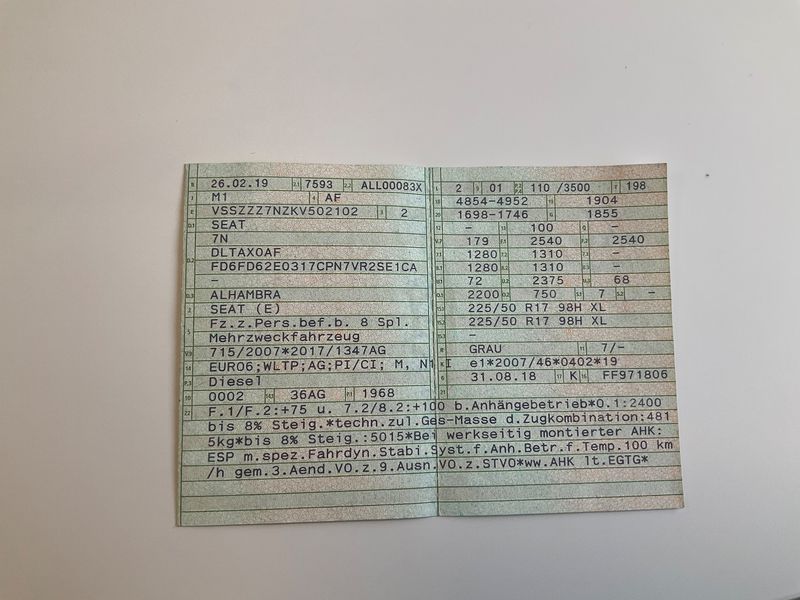 26.02.19 7593 ALL00083X
M1 AF
VSSZZZ7NZKV502102 2
SEAT
7N
DLTAX0AF
FD6FD62E0317CPN7VR2SE1CA
-
ALHAMBRA
SEAT (E)
Fz.z.Pers.bef.b. 8 Spl.
Mehrzweckfahrzeug
715/2007*2017/1347AG
EURO6;WLTP;AG;PI/CI; M, N1 I
Diesel
0002 36AG 1968
2 01 110 /3500 198
4854-4952 1904
1698-1746 1855
- 100 -
179 2540 2540
1280 1310 -
1280 1310 -
72 2375 68
2200 750 7 -
225/50 R17 98H XL
225/50 R17 98H XL
-
GRAU 7/-
e1*2007/46*0402*19
31.08.18 K FF971806
F.1/F.2:+75 u. 7.2/8.2:+100 b.Anhängebetrieb*O.1:2400
bis 8% Steig.*techn.zul.Ges-Masse d.Zugkombination:481
5kg*bis 8% Steig.:5015*Bei werkseitig montierter AHK:
ESP m.spez.Fahrdyn.Stabi.Syst.f.Anh.Betr.f.Temp.100 km
/h gem.3.Aend.VO.z.9.Ausn.VO.z.STVO*ww.AHK lt.EGTG*